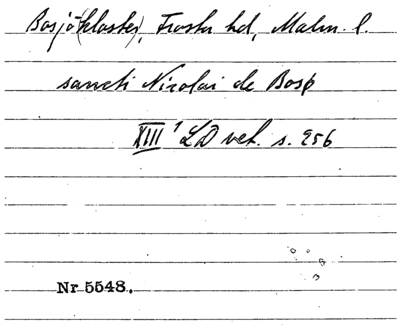 Bosjö(kloster), Frosta hd, Malm. l.
sancti Nicolai de Bosø
XIII¹ LD vet. s. 256
Nr 5548.